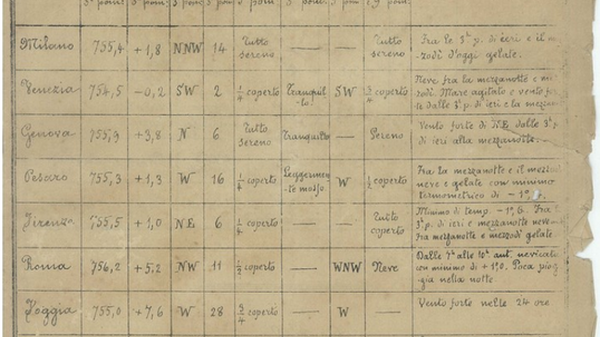 Milano 755,4 +1,8 NNW 14 Tutto sereno — — Tutto sereno Fra le 3ª p. di ieri e il m
zodì d'oggi gelate.
Venezia 754,5 -0,2 SW 2 1/4 coperto Tranquil-lo SW 3/4 coperto Neve fra la mezzanotte e
zodì. Mare agitato e vento fo
te dalle 3ª p. di ieri e la mezzan
Genova 755,3 +3,8 N 6 Tutto sereno Tranquillo — Sereno Vento forte di NE dalle 3ª p.
di ieri alla mezzanotte.
Pesaro 755,3 +1,3 W 16 1/4 coperto Leggermen-te mosso. W 1/2 coperto Fra la mezzanotte e il mezzod
neve e gelate con minimo
termometrico di — 1°,
Firenze 755,5 +1,0 NE 6 1/4 coperto — — Tutto coperto Minimo di temp. -1°,6. Fra l
3ª p. di ieri e mezzanotte neve
fra mezzanotte e mezzodì gelate
Roma 756,2 +5,2 NW 11 1/2 coperto — WNW Neve Dalle 7ª alle 10ª ant. nevicat
con minimo di +1°,0. Poca piog
gia nella notte.
Foggia 755,0 +7,6 W 28 3/4 coperto — W — Vento forte nelle 24 ore